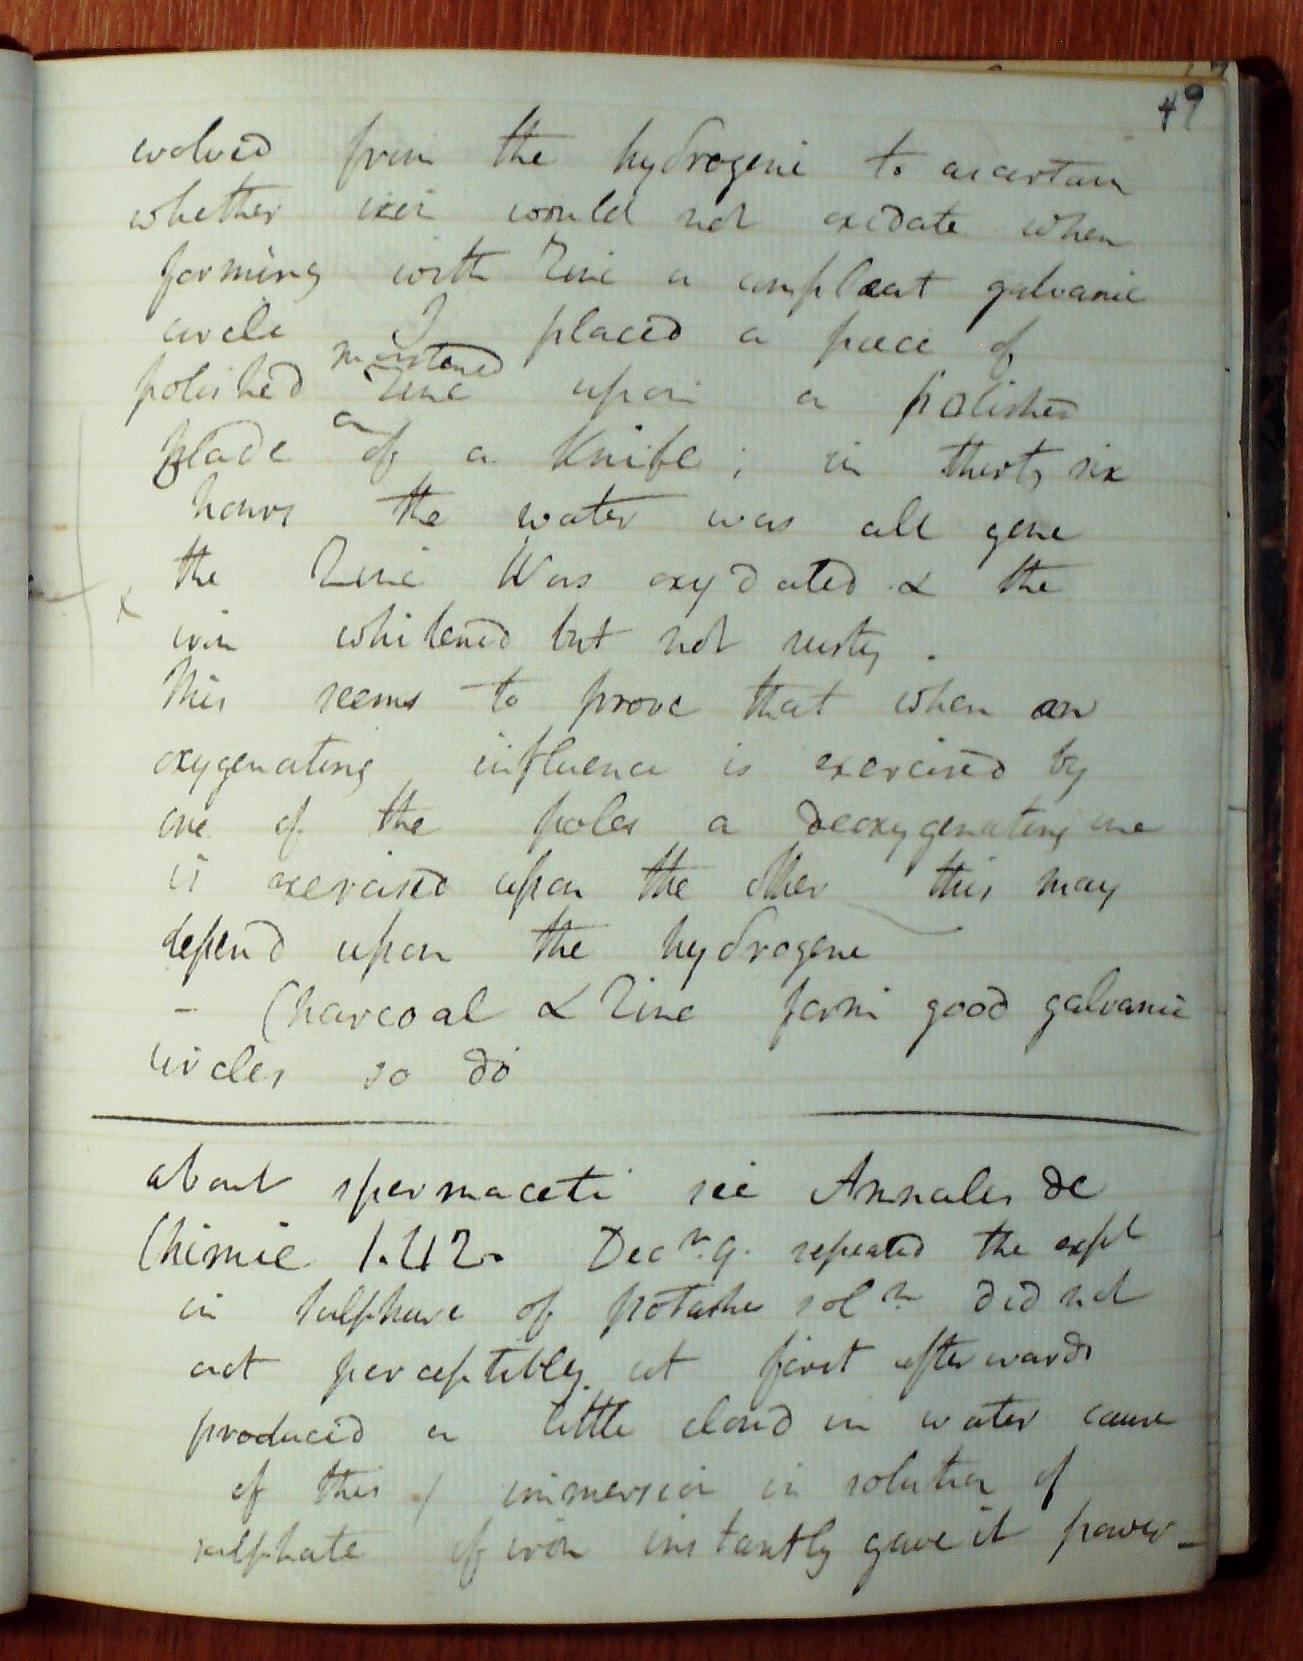 49
evolved from the hydrogene to ascertain
whether iron would not oxidate when
forming with Zinc a compleat galvanic
circle I placed a piece of
moistened
polished Zinc upon a polished
blade of a Knife; in therty six
hours the water was all gone
the Zinc Was oxydated & the
x
iron whitened but not rusty.
This seems to prove that when an
oxygenating influence is exercised by
one of the poles a deoxygenating one
is exercised upon the other this may
depend upon the hydrogene
- Charcoal & Zinc form good galvanic
circles so do
about spermaceti see Annales de
Chimie 1.42. Decr. 9. repeated the expt
in sulphure of potashe soln did not
act perceptibly at first afterwards
produced a little cloud in water cause
of this / immersion in solution of
sulphate of iron instantly gave it power-